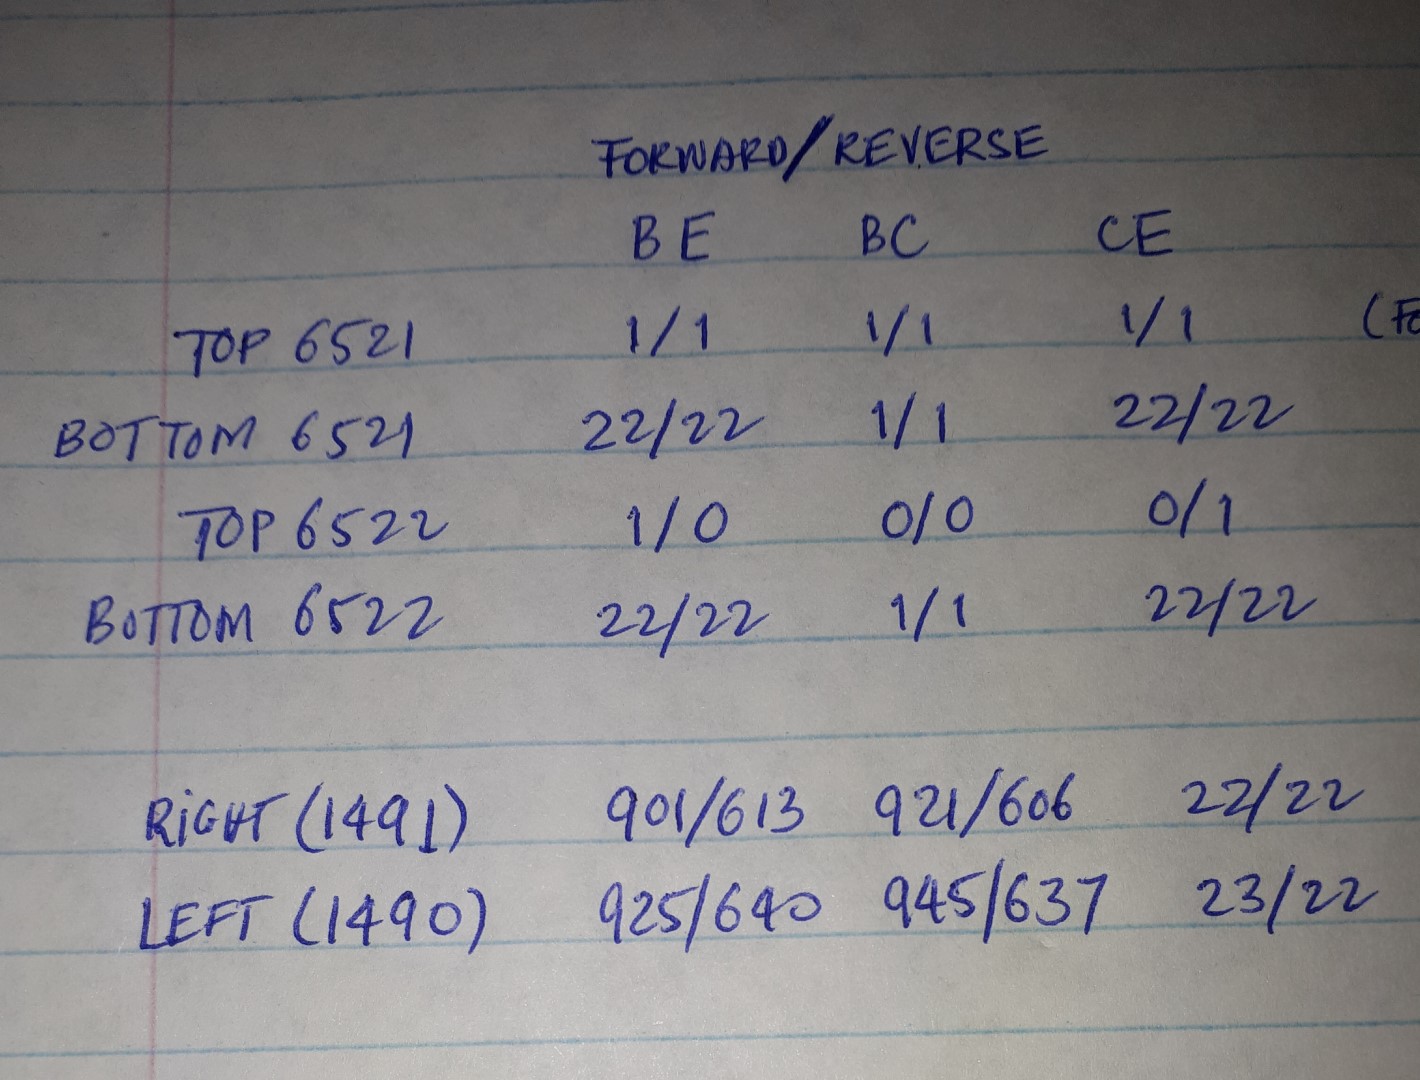 FORWARD/REVERSE
BE BC CE
TOP 6521 1/1 1/1 1/1 (
BOTTOM 6521 22/22 1/1 22/22
TOP 6522 1/0 0/0 0/1
BOTTOM 6522 22/22 1/1 22/22
RIGHT (1491) 901/613 921/606 22/22
LEFT (1490) 925/640 945/637 23/22